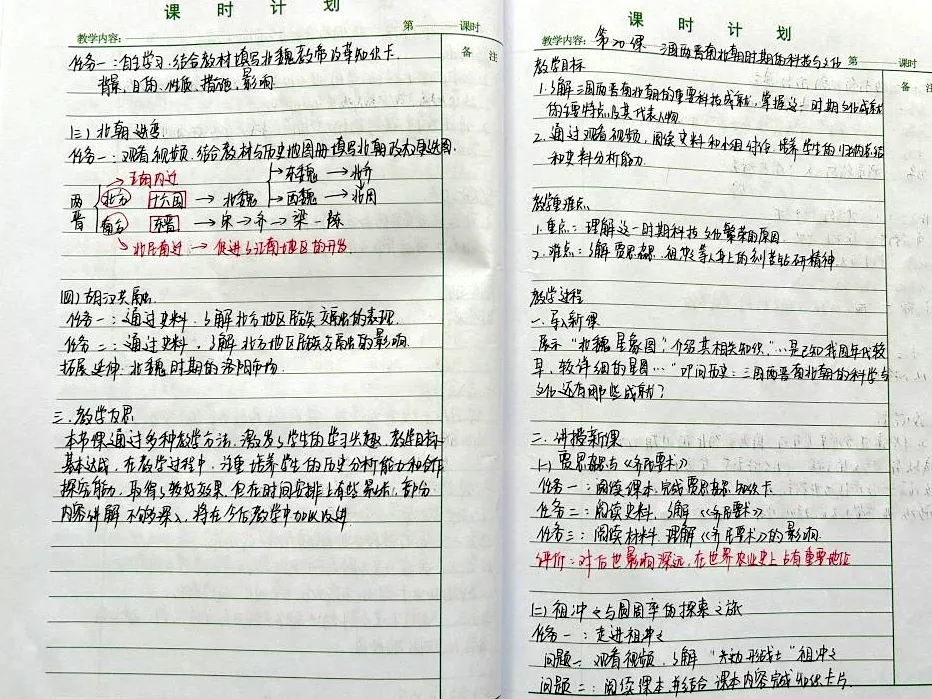 课 时 计 划
第 课时
教学内容:
备 注
任务一:自主学习,结合教材填写北魏孝文帝改革知识卡
背景、目的、性质、措施、影响
(三)北朝政权
任务一:观看视频,结合教材与历史地图册填写北朝政权更迭图.
王朝内迁
东魏 → 北齐
两晋 北方 十六国 → 北魏 西魏 → 北周
南方 东晋 → 宋 → 齐 → 梁 — 陈
北民南迁 → 促进了江南地区的开发
(四)胡汉交融
任务一:通过史料,了解北方地区民族交融的表现.
任务二:通过史料,了解北方地区民族交融的影响.
拓展延伸:北魏时期的洛阳市场.
三.教学反思
本节课通过多种教学方法,激发了学生的学习兴趣,教学目标
基本达成,在教学过程中,注重培养学生的历史分析能力和合作
探究能力,取得了较好效果,但在时间安排上有些紧张,部分
内容讲解不够深入,将在今后教学中加以改进.
课 时 计 划
教学内容:第20课 三国两晋南北朝时期的科技与文化 第 课时
备 注
教学目标
1.了解三国两晋南北朝的重要科技成就,掌握这一时期文化成就
的主要特点及其代表人物
2.通过观看视频,阅读史料和小组讨论,培养学生的归纳总结
和史料分析能力.
教学重难点
1.重点:理解这一时期科技文化繁荣的原因
2.难点:了解贾思勰、祖冲之等人身上的刻苦钻研精神
教学过程
一.导入新课
展示"北魏星象图",介绍其相关知识,"…是已知我国年代较
早,较详细的星图…"叩问历史:三国两晋南北朝的科学与
文化还有哪些成就?
二.讲授新课
(一)贾思勰与《齐民要术》
任务一:阅读课本,完成贾思勰知识卡
任务二:阅读史料,了解《齐民要术》
任务三:阅读材料,理解《齐民要术》的影响
评价:对后世影响深远,在世界农业史上占有重要地位
(二)祖冲之与圆周率的探索之旅
任务一:走进祖冲之
问题一:观看视频,了解" 战士"祖冲之
问题二:阅读课本,并结合课本内容完成知识卡片